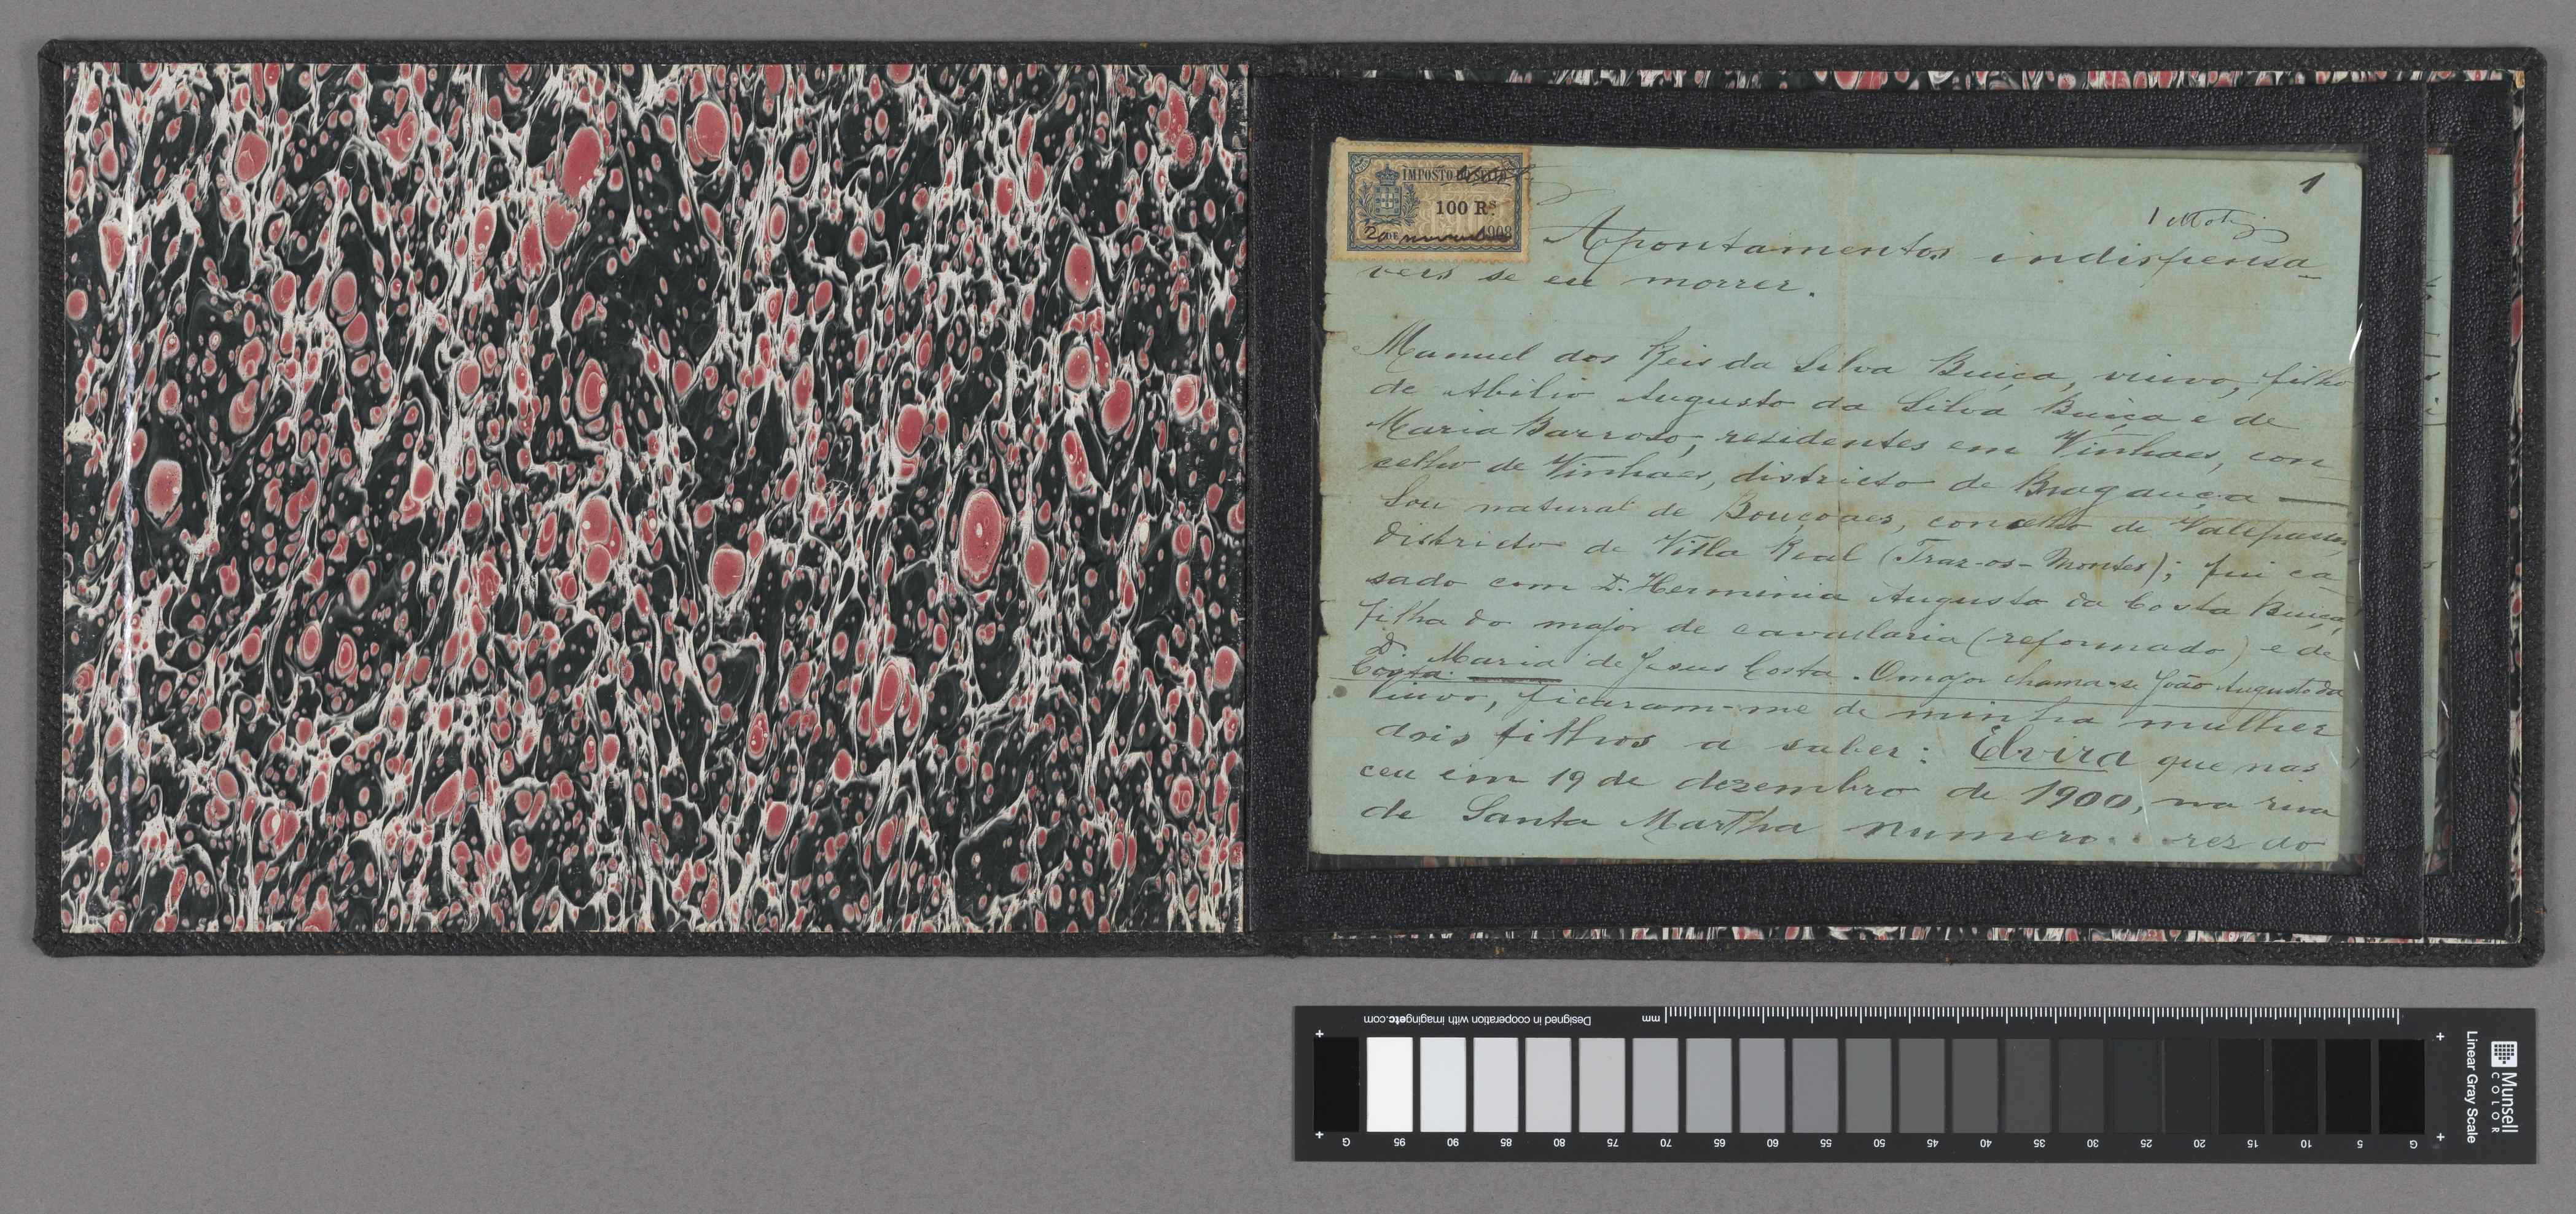 1
IMPOSTO DO SELLO
100 Rs.
20 DE 1908
Apontamentos indispensa-
veis se eu morrer.
Manuel dos Reis da Silva Buiça, viuvo, filho
de Abilio Augusto da Silva Buiça e de
Maria Barroso, residentes em Vinhaes, con
celho de Vinhaes, districto de Bragança —
Sou natural de Bouçoaes, concelho de Valepassos,
districto de Villa Real (Traz-os-Montes); fui ca
sado com D. Herminia Augusta da Costa Buiça,
filha do major de cavallaria (reformado) e de
D. Maria de Jesus Costa. O major chama-se João Augusto da
Costa. —
Viuvo, ficaram-me de minha mulher
dois filhos a saber: Elvira que nas
ceu em 19 de dezembro de 1900, na rua
de Santa Martha numero... rez do
Designed in cooperation with imagingetc.com
mm
G 95 90 85 80 75 70 65 60 55 50 45 40 35 30 25 20 15 10 5 G
Munsell
COLOR
Linear Gray Scale